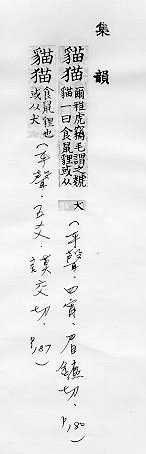 集韻
貓猫 爾雅虎竊毛謂之虦
貓一曰食鼠貍或从
犬
(平聲．四宵．眉鑣切．P.180)
貓猫 食鼠貍也
或从犬
(平聲．五爻．謨交切．P.187)